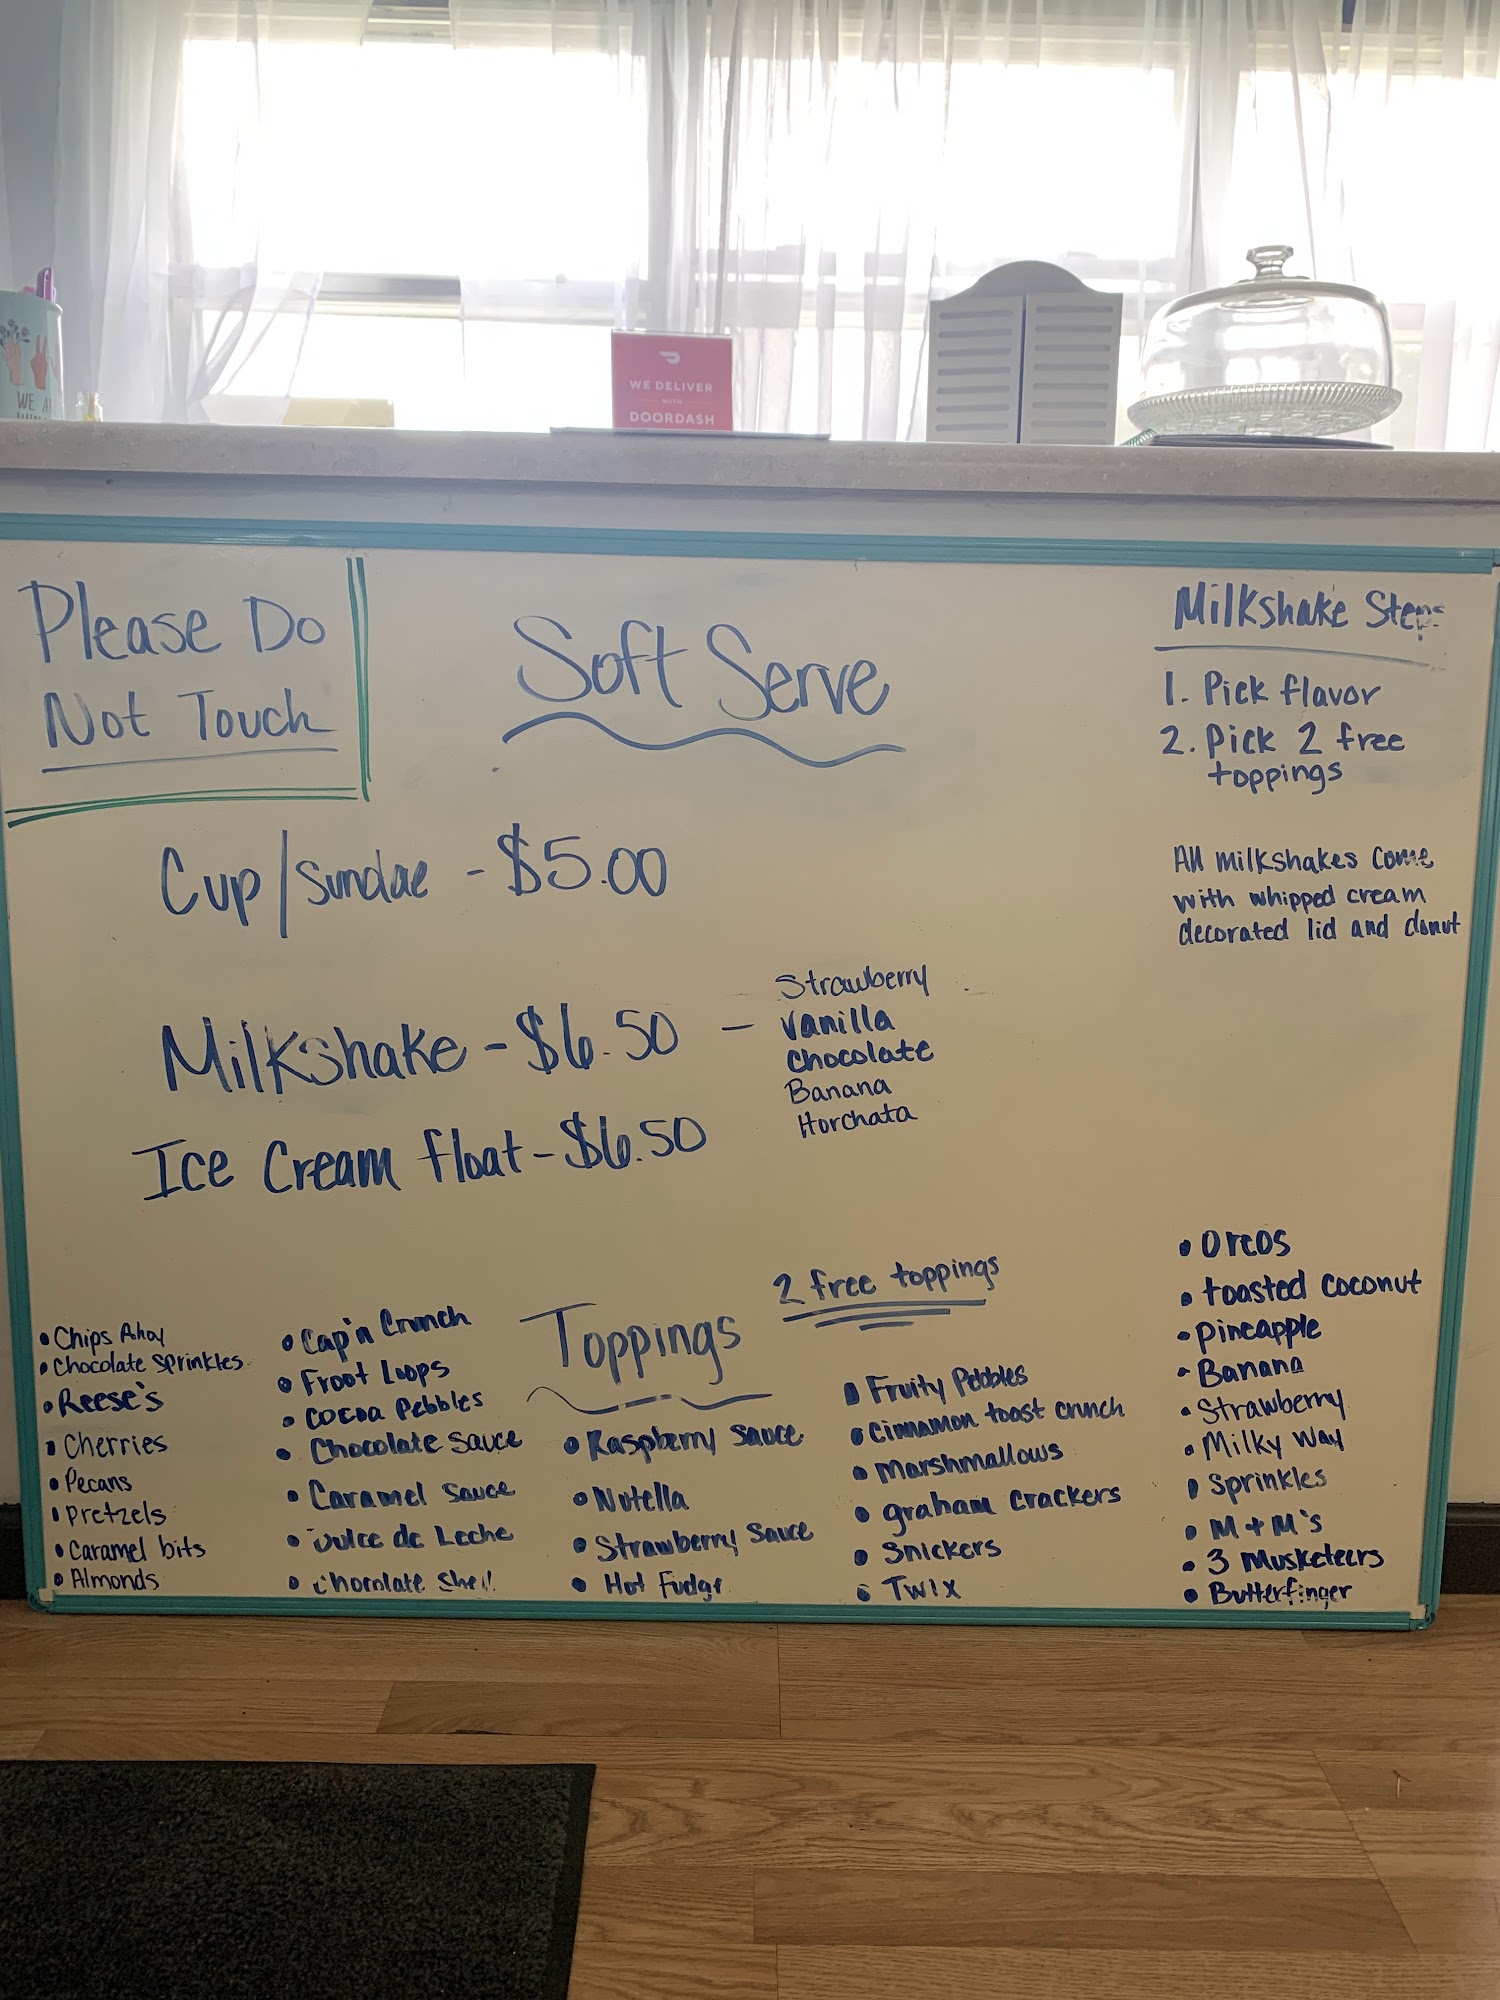 WE DELIVER
WITH
DOORDASH
WE
Please Do
Not Touch
Soft Serve
Cup/Sundae - $5.00
Milkshake - $6.50 -
Strawberry
Vanilla
Chocolate
Banana
Horchata
Ice Cream float - $6.50
Milkshake Steps
1. Pick flavor
2. Pick 2 free
toppings
All milkshakes come
with whipped cream
decorated lid and donut
Toppings
2 free toppings
• Chips Ahoy
• Chocolate sprinkles
• Reese's
• Cherries
• Pecans
• Pretzels
• Caramel bits
• Almonds
• Cap'n Crunch
• Froot Loops
• Cocoa Pebbles
• Chocolate sauce
• Caramel sauce
• Dulce de Leche
• Chocolate Shell
• Raspberry sauce
• Nutella
• Strawberry Sauce
• Hot Fudge
• Fruity Pebbles
• Cinnamon toast crunch
• Marshmallows
• graham crackers
• Snickers
• Twix
• Oreos
• toasted coconut
• Pineapple
• Banana
• Strawberry
• Milky Way
• Sprinkles
• M+M's
• 3 Musketeers
• Butterfinger